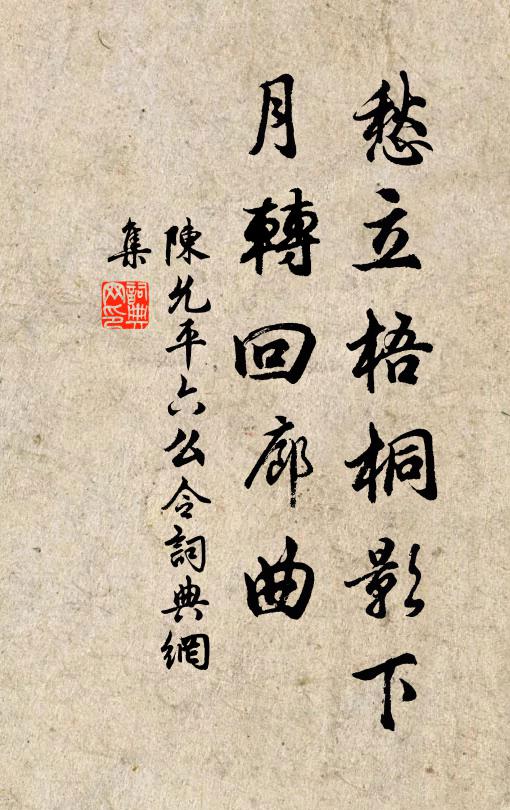 愁立梧桐影下
月轉回廊曲
陳允平六么令詞典網
集
詞典网印